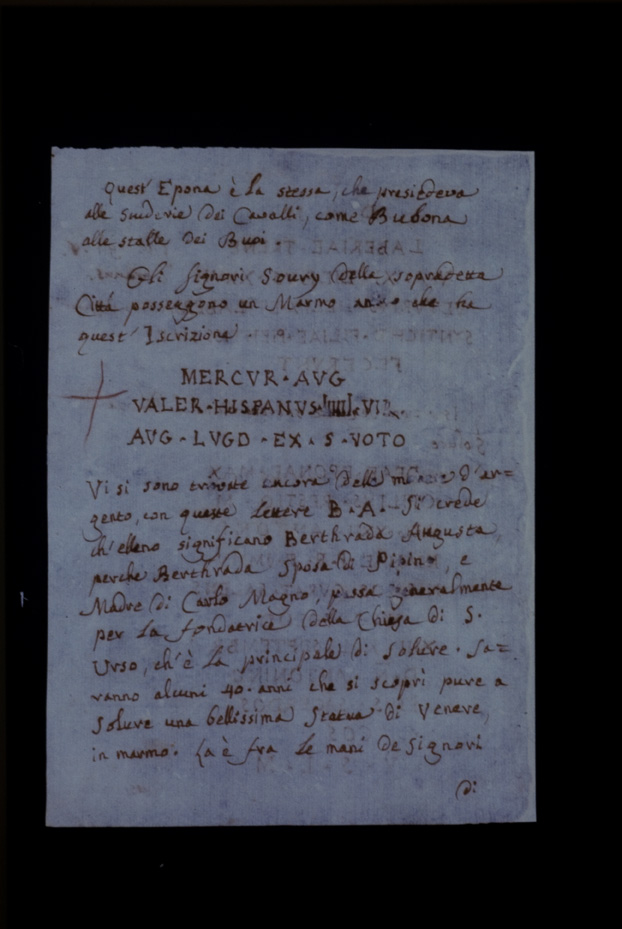 Quest' Epona è la stessa, che presiedeva
alle Scuderie dei Cavalli, come Bubona
alle stalle dei Buoi.
Gli Signori Soury della sopradetta
Città posseggono un Marmo che ha
quest' Iscrizione
MERCVR · AVG
VALER · HISPANVS · VI
AVG · LVGD · EX · S · VOTO
Vi si sono trovate ancora delle monete d'ar=
gento, con queste lettere B · A · Si crede
ch'elleno significano Berthrada Augusta,
perche Berthrada Sposa di Pipino, e
Madre di Carlo Magno, passa generalmente
per la fondatrice della Chiesa di S.
Urso, ch'è la principale di Solure. Sa=
ranno alcuni 40. anni che si scoprì pure a
Solure una bellissima Statua di Venere,
in marmo. La è fra le mani de Signori
di